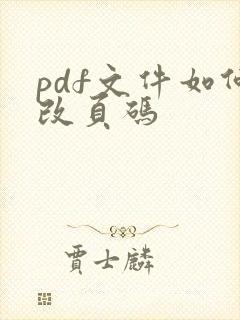 pdf文件如何
改頁碼
賈士麟